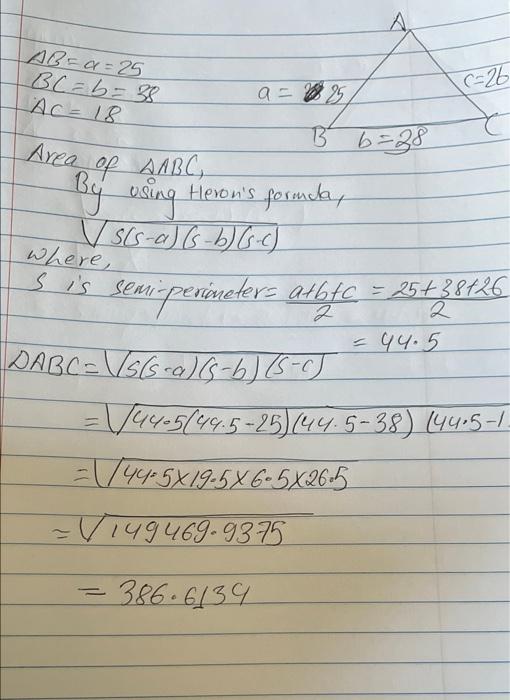 A
AB = a = 25
BC = b = 38
AC = 18
a = 25
c = 26
B
b = 38
C
Area of △ABC,
By using Heron's formula,
√s(s-a)(s-b)(s-c)
where,
S is semi-perimeter = a+b+c/2 = 25+38+26/2
= 44.5
DABC = √s(s-a)(s-b)(s-c)
= √44.5(44.5-25)(44.5-38)(44.5-1
= √44.5×19.5×6.5×26.5
= √149469.9375
= 386.6134